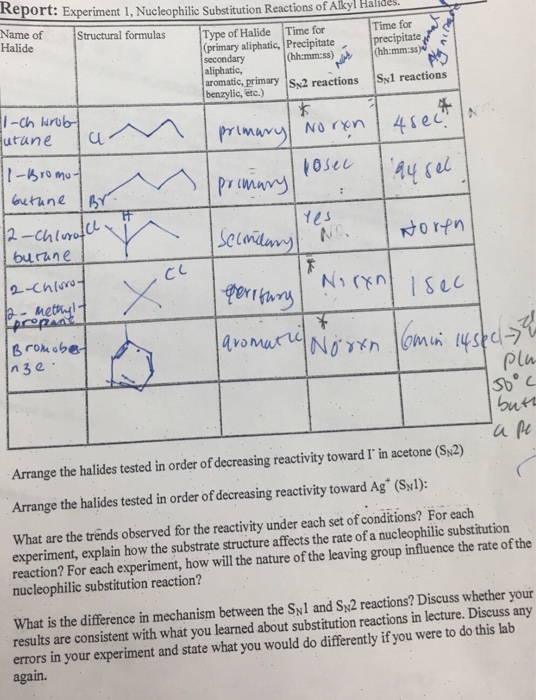 Report: Experiment 1, Nucleophilic Substitution Reactions of Alkyl Halides.
Name of Halide
Structural formulas
Type of Halide (primary aliphatic, secondary aliphatic, aromatic, primary benzylic, etc.)
Time for Precipitate (hh:mm:ss) NaI
SN2 reactions
Time for precipitate (hh:mm:ss)
SN1 reactions
1-chlorob
utane
Cl
primary
* No rxn
4 sec. *
1-Bromo-
butane
Br
primary
10 sec
:
94 sec
2-chloro
butane
Cl
H
Secondary
Yes
No rxn
2-chloro-
2-methyl-
propane
CL
tertiary
* No rxn
1 sec
Bromobe
nze
aromatic
* No rxn
6 min 14 sec
50° C
Arrange the halides tested in order of decreasing reactivity toward I⁻ in acetone (SN2)
Arrange the halides tested in order of decreasing reactivity toward Ag⁺ (SN1):
What are the trends observed for the reactivity under each set of conditions? For each
experiment, explain how the substrate structure affects the rate of a nucleophilic substitution
reaction? For each experiment, how will the nature of the leaving group influence the rate of the
nucleophilic substitution reaction?
What is the difference in mechanism between the SN1 and SN2 reactions? Discuss whether your
results are consistent with what you learned about substitution reactions in lecture. Discuss any
errors in your experiment and state what you would do differently if you were to do this lab
again.